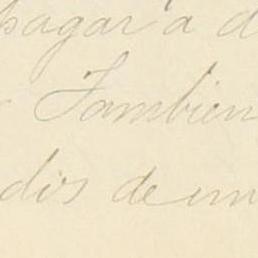 pagar a d
Tambien
dis de un